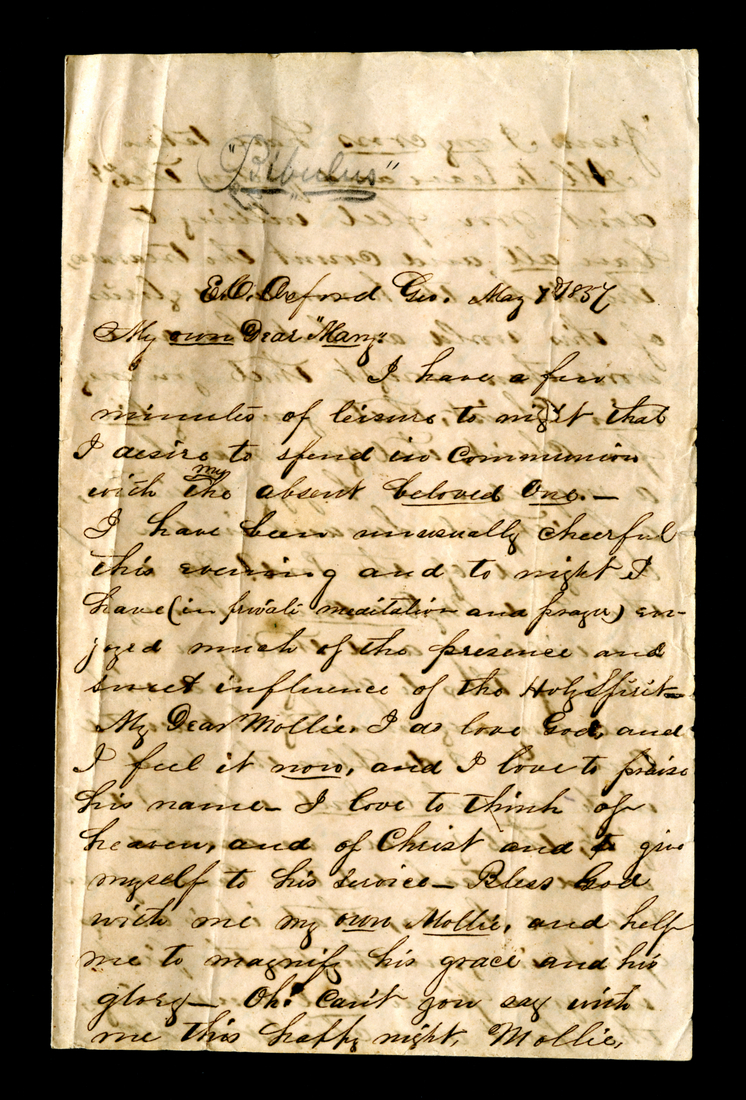 "Bibulus"
E.C. Oxford Geo. May 1857
My own Dear "Mary"
I have a few
minutes of leisure to night that
I desire to spend in communion
with my the absent beloved One.—
I have been unusually cheerful
this evening and to night I
have (in private meditation and prayer) en-
joyed much of the presence and
sweet influence of the Holy Spirit—
My Dear Mollie, I do love God, and
I feel it now, and I love to praise
his name— I love to think of
heaven, and of Christ and to give
myself to his service— Bless God
with me my own Mollie, and help
me to magnify his grace and his
glory— Oh! can't you say with
me this happy night, Mollie,